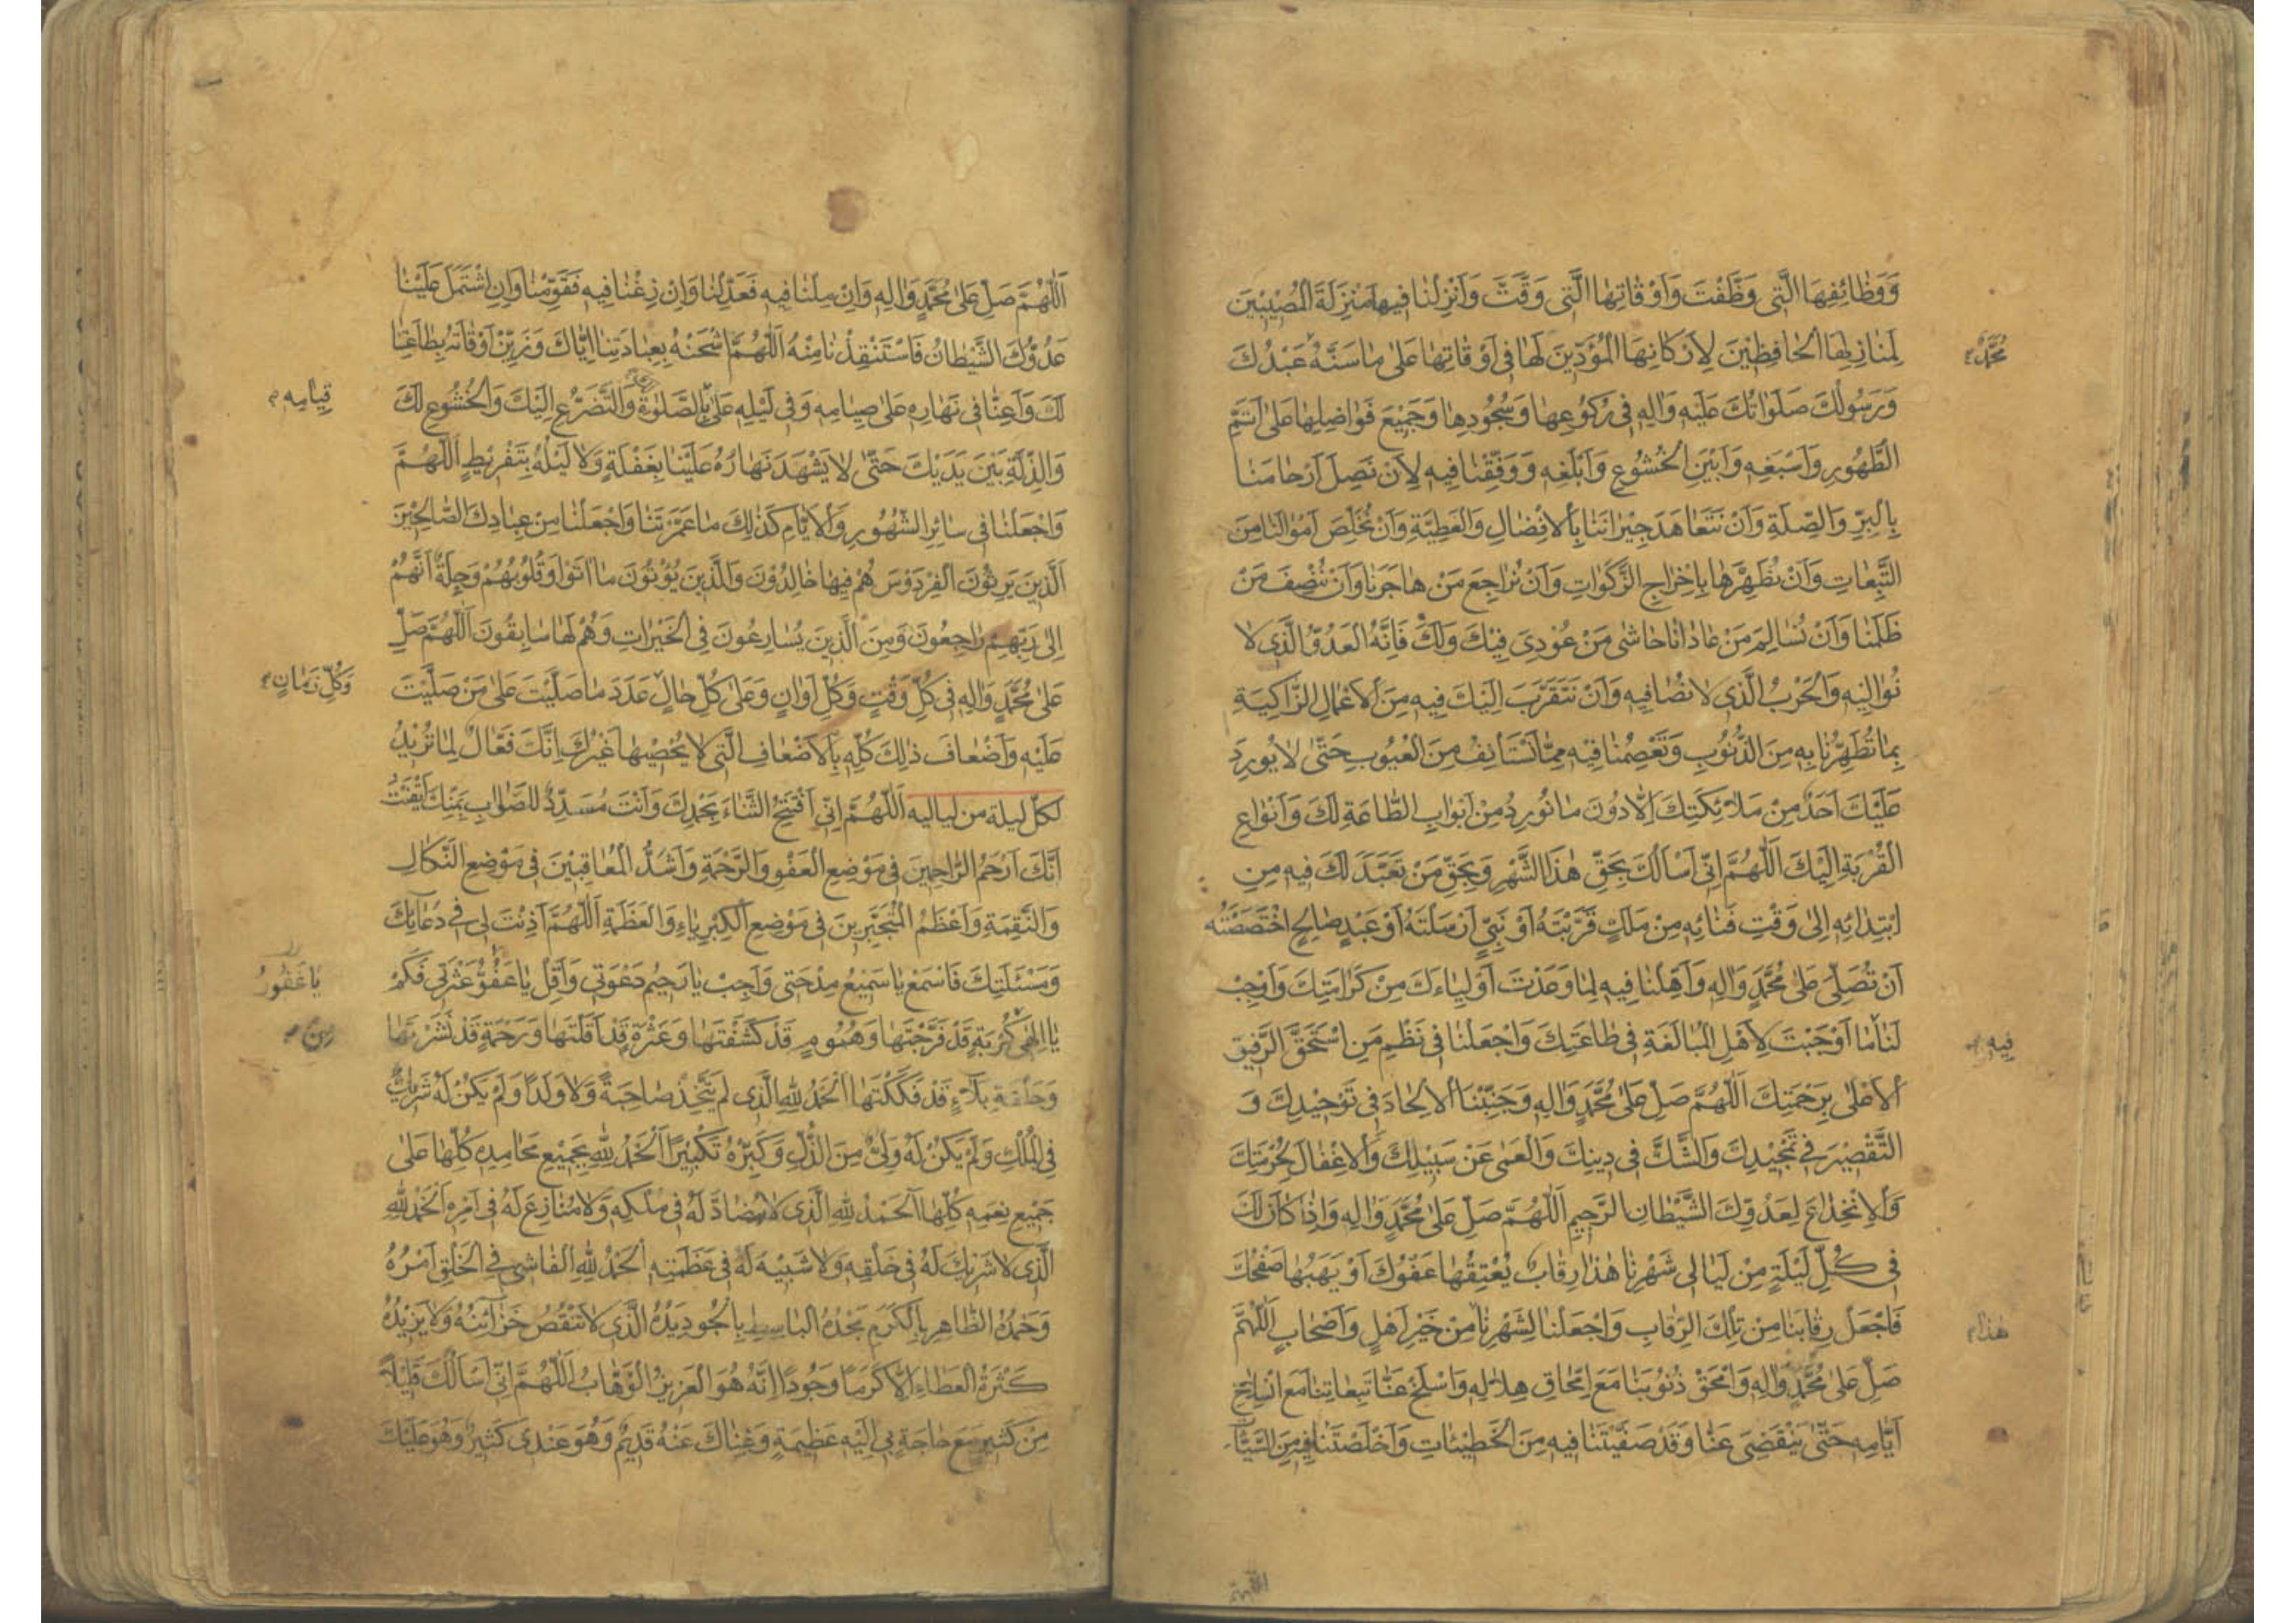 وَوَظَائِفِهَا الَّتِى وَظَّفْتَ وَاَوْقَاتِهَا الَّتِى وَقَّتَّ وَاَنْزِلْنَا فِيهَا مَنْزِلَةَ الْمُصِيْبِيْنَ
لِمَنَازِلِهَا الْحَافِظِيْنَ لِاَرْكَانِهَا الْمُؤَدِّيْنَ لَهَا فِى اَوْقَاتِهَا عَلىٰ مَا سَنَّهُ عَبْدُكَ
مُحَمَّدٌ
وَرَسُولُكَ صَلَوَاتُكَ عَلَيْهِ وَالِهِ فِى رُكُوْعِهَا وَسُجُودِهَا وَجَمِيْعَ فَوَاضِلِهَا عَلىٰ اَتَمِّ
الطَّهُورِ وَاَسْبَغِهِ وَاَبْيَنِ الْخُشُوْعِ وَاَبْلَغِهِ وَوَفِّقْنَا فِيهِ لِاَنْ نَصِلَ اَرْحَامَنَا
بِالْبِرِّ وَالصِّلَةِ وَاَنْ نَتَعَاهَدَ جِيْرَانَنَا بِالْاِفْضَالِ وَالْعَطِيَّةِ وَاَنْ نُخَلِّصَ اَمْوَالَنَا مِنَ
التَّبِعَاتِ وَاَنْ نُطَهِّرَهَا بِاِخْرَاجِ الزَّكَوَاتِ وَاَنْ نُرَاجِعَ مَنْ هَاجَرَنَا وَاَنْ نُنْصِفَ مَنْ
ظَلَمَنَا وَاَنْ نُسَالِمَ مَنْ عَادَانَا حَاشى مَنْ عُوْدِىَ فِيْكَ وَلَكَ فَاِنَّهُ الْعَدُوُّ الَّذِى لَا
نُوَالِيْهِ وَالْحَرْبُ الَّذِى لَا نُصَافِيهِ وَاَنْ نَتَقَرَّبَ اِلَيْكَ فِيهِ مِنَ الْاَعْمَالِ الزَّاكِيَةِ
بِمَا تُطَهِّرُنَا بِهِ مِنَ الذُّنُوْبِ وَتَعْصِمُنَا فِيْهِ مِمَّا نَسْتَأْنِفُ مِنَ الْعُيُوْبِ حَتّٰى لَا يُورِدَ
عَلَيْكَ اَحَدٌ مِنْ مَلَائِكَتِكَ اِلَّا دُوْنَ مَا نُورِدُ مِنْ اَبْوَابِ الطَّاعَةِ لَكَ وَاَنْوَاعِ
الْقُرْبَةِ اِلَيْكَ اَللّٰهُمَّ اِنِّى اَسْأَلُكَ بِحَقِّ هٰذَا الشَّهْرِ وَبِحَقِّ مَنْ تَعَبَّدَ لَكَ فِيهِ مِنِ
ابْتِدَائِهِ اِلىٰ وَقْتِ فَنَائِهِ مِنْ مَلَكٍ قَرَّبْتَهُ اَوْ نَبِىٍّ اَرْسَلْتَهُ اَوْ عَبْدٍ صَالِحٍ اخْتَصَصْتَهُ
اَنْ تُصَلِّىَ عَلىٰ مُحَمَّدٍ وَالِهِ وَاَهِّلْنَا فِيهِ لِمَا وَعَدْتَ اَوْلِيَاءَكَ مِنْ كَرَامَتِكَ وَاَوْجِبْ
لَنَا مَا اَوْجَبْتَ لِاَهْلِ الْمُبَالَغَةِ فِى طَاعَتِكَ وَاجْعَلْنَا فِى نَظْمِ مَنِ اسْتَحَقَّ الرَّفِيْقَ
فِيهِ
الْاَعْلىٰ بِرَحْمَتِكَ اَللّٰهُمَّ صَلِّ عَلىٰ مُحَمَّدٍ وَالِهِ وَجَنِّبْنَا الْاِلْحَادَ فِى تَوْحِيْدِكَ وَ
التَّقْصِيْرَ فِى تَمْجِيْدِكَ وَالشَّكَّ فِى دِينِكَ وَالْعَمٰى عَنْ سَبِيْلِكَ وَالْاِغْفَالَ لِحُرْمَتِكَ
وَالْاِنْخِدَاعَ لِعَدُوِّكَ الشَّيْطَانِ الرَّجِيمِ اَللّٰهُمَّ صَلِّ عَلىٰ مُحَمَّدٍ وَالِهِ وَاِذَا كَانَ لَكَ
فِى كُلِّ لَيْلَةٍ مِنْ لَيَالِى شَهْرِنَا هٰذَا رِقَابٌ يُعْتِقُهَا عَفْوُكَ اَوْ يَهَبُهَا صَفْحُكَ
فَاجْعَلْ رِقَابَنَا مِنْ تِلْكَ الرِّقَابِ وَاجْعَلْنَا لِشَهْرِنَا مِنْ خَيْرِ اَهْلٍ وَاَصْحَابٍ اَللّٰهُمَّ
هٰذَا
صَلِّ عَلىٰ مُحَمَّدٍ وَالِهِ وَامْحَقْ ذُنُوْبَنَا مَعَ اِمِّحَاقِ هِلَالِهِ وَاسْلَخْ عَنَّا تَبِعَاتِنَا مَعَ انْسِلَاخِ
اَيَّامِهِ حَتّٰى يَنْقَضِىَ عَنَّا وَقَدْ صَفَّيْتَنَا فِيهِ مِنَ الْخَطِيْئَاتِ وَاَخْلَصْتَنَا فِيهِ مِنَ السَّيِّئَاتِ
اللّٰهمّ
اَللّٰهُمَّ صَلِّ عَلىٰ مُحَمَّدٍ وَالِهِ وَاِنْ مِلْنَا فِيهِ فَعَدِّلْنَا وَاِنْ زِغْنَا فِيهِ فَقَوِّمْنَا وَاِنِ اشْتَمَلَ عَلَيْنَا
عَدُوُّكَ الشَّيْطَانُ فَاسْتَنْقِذْنَا مِنْهُ اَللّٰهُمَّ اشْحَنْهُ بِعِبَادَتِنَا اِيَّاكَ وَزَيِّنْ اَوْقَاتَهُ بِطَاعَتِنَا
لَكَ وَاَعِنَّا فِى نَهَارِهِ عَلىٰ صِيَامِهِ وَفِى لَيْلِهِ عَلَى الصَّلٰوةِ وَالتَّضَرُّعِ اِلَيْكَ وَالْخُشُوعِ لَكَ
قِيَامِهِ
وَالذِّلَّةِ بَيْنَ يَدَيْكَ حَتّٰى لَا يَشْهَدَ نَهَارُهُ عَلَيْنَا بِغَفْلَةٍ وَلَا لَيْلُهُ بِتَفْرِيْطٍ اَللّٰهُمَّ
وَاجْعَلْنَا فِى سَائِرِ الشُّهُوْرِ وَالْاَيَّامِ كَذٰلِكَ مَا عَمَّرْتَنَا وَاجْعَلْنَا مِنْ عِبَادِكَ الصَّالِحِيْنَ
اَلَّذِينَ يَرِثُوْنَ الْفِرْدَوْسَ هُمْ فِيهَا خَالِدُوْنَ وَالَّذِينَ يُؤْتُوْنَ مَا اٰتَوْا وَقُلُوْبُهُمْ وَجِلَةٌ اَنَّهُمْ
اِلىٰ رَبِّهِمْ رَاجِعُونَ وَمِنَ الَّذِينَ يُسَارِعُونَ فِى الْخَيْرَاتِ وَهُمْ لَهَا سَابِقُونَ اَللّٰهُمَّ صَلِّ
عَلىٰ مُحَمَّدٍ وَالِهِ فِى كُلِّ وَقْتٍ وَكُلِّ اَوَانٍ وَعَلىٰ كُلِّ حَالٍ عَدَدَ مَا صَلَّيْتَ عَلىٰ مَنْ صَلَّيْتَ
وَكُلِّ زَمَانٍ
عَلَيْهِ وَاَضْعَافَ ذٰلِكَ كُلِّهِ بِالْاَضْعَافِ الَّتِى لَا يُحْصِيْهَا غَيْرُكَ اِنَّكَ فَعَّالٌ لِمَا تُرِيْدُ
لكلّ ليلة من لياليه اَللّٰهُمَّ اِنِّى اَفْتَتِحُ الثَّنَاءَ بِحَمْدِكَ وَاَنْتَ مُسَدِّدٌ لِلصَّوَابِ بِمَنِّكَ اَيْقَنْتُ
اَنَّكَ اَرْحَمُ الرَّاحِمِينَ فِى مَوْضِعِ الْعَفْوِ وَالرَّحْمَةِ وَاَشَدُّ الْمُعَاقِبِيْنَ فِى مَوْضِعِ النَّكَالِ
وَالنَّقِمَةِ وَاَعْظَمُ الْمُتَجَبِّرِينَ فِى مَوْضِعِ الْكِبْرِيَاءِ وَالْعَظَمَةِ اَللّٰهُمَّ اَذِنْتَ لِى فِى دُعَائِكَ
وَمَسْئَلَتِكَ فَاسْمَعْ يَا سَمِيْعُ مِدْحَتِى وَاَجِبْ يَا رَحِيْمُ دَعْوَتِى وَاَقِلْ يَا عَفُوُّ عَثْرَتِى فَكَمْ
يَا غَفُوْرُ
يَا اِلٰهِى كُرْبَةٍ قَدْ فَرَّجْتَهَا وَهُمُوْمٍ قَدْ كَشَفْتَهَا وَعَثْرَةٍ قَدْ اَقَلْتَهَا وَرَحْمَةٍ قَدْ نَشَرْتَهَا
مِنْ
وَحَلْقَةِ بَلَاءٍ قَدْ فَكَكْتَهَا اَلْحَمْدُ لِلّٰهِ الَّذِى لَمْ يَتَّخِذْ صَاحِبَةً وَلَا وَلَدًا وَلَمْ يَكُنْ لَهُ شَرِيْكٌ
فِى الْمُلْكِ وَلَمْ يَكُنْ لَهُ وَلِىٌّ مِنَ الذُّلِّ وَكَبِّرْهُ تَكْبِيْرًا اَلْحَمْدُ لِلّٰهِ بِجَمِيْعِ مَحَامِدِهِ كُلِّهَا عَلىٰ
جَمِيْعِ نِعَمِهِ كُلِّهَا اَلْحَمْدُ لِلّٰهِ الَّذِى لَا مُضَادَّ لَهُ فِى مُلْكِهِ وَلَا مُنَازِعَ لَهُ فِى اَمْرِهِ اَلْحَمْدُ لِلّٰهِ
الَّذِى لَا شَرِيْكَ لَهُ فِى خَلْقِهِ وَلَا شَبِيْهَ لَهُ فِى عَظَمَتِهِ اَلْحَمْدُ لِلّٰهِ الْفَاشِى فِى الْخَلْقِ اَمْرُهُ
وَحَمْدُهُ الظَّاهِرِ بِالْكَرَمِ مَجْدُهُ الْبَاسِطِ بِالْجُودِ يَدَهُ الَّذِى لَا تَنْقُصُ خَزَائِنُهُ وَلَا يَزِيْدُهُ
كَثْرَةُ الْعَطَاءِ اِلَّا كَرَمًا وَجُوْدًا اِنَّهُ هُوَ الْعَزِيْزُ الْوَهَّابُ اَللّٰهُمَّ اِنِّى اَسْأَلُكَ قَلِيْلًا
مِنْ كَثِيْرٍ مَعَ حَاجَةٍ بِى اِلَيْهِ عَظِيْمَةٍ وَغِنَاكَ عَنْهُ قَدِيْمٌ وَهُوَ عِنْدِى كَثِيْرٌ وَهُوَ عَلَيْكَ